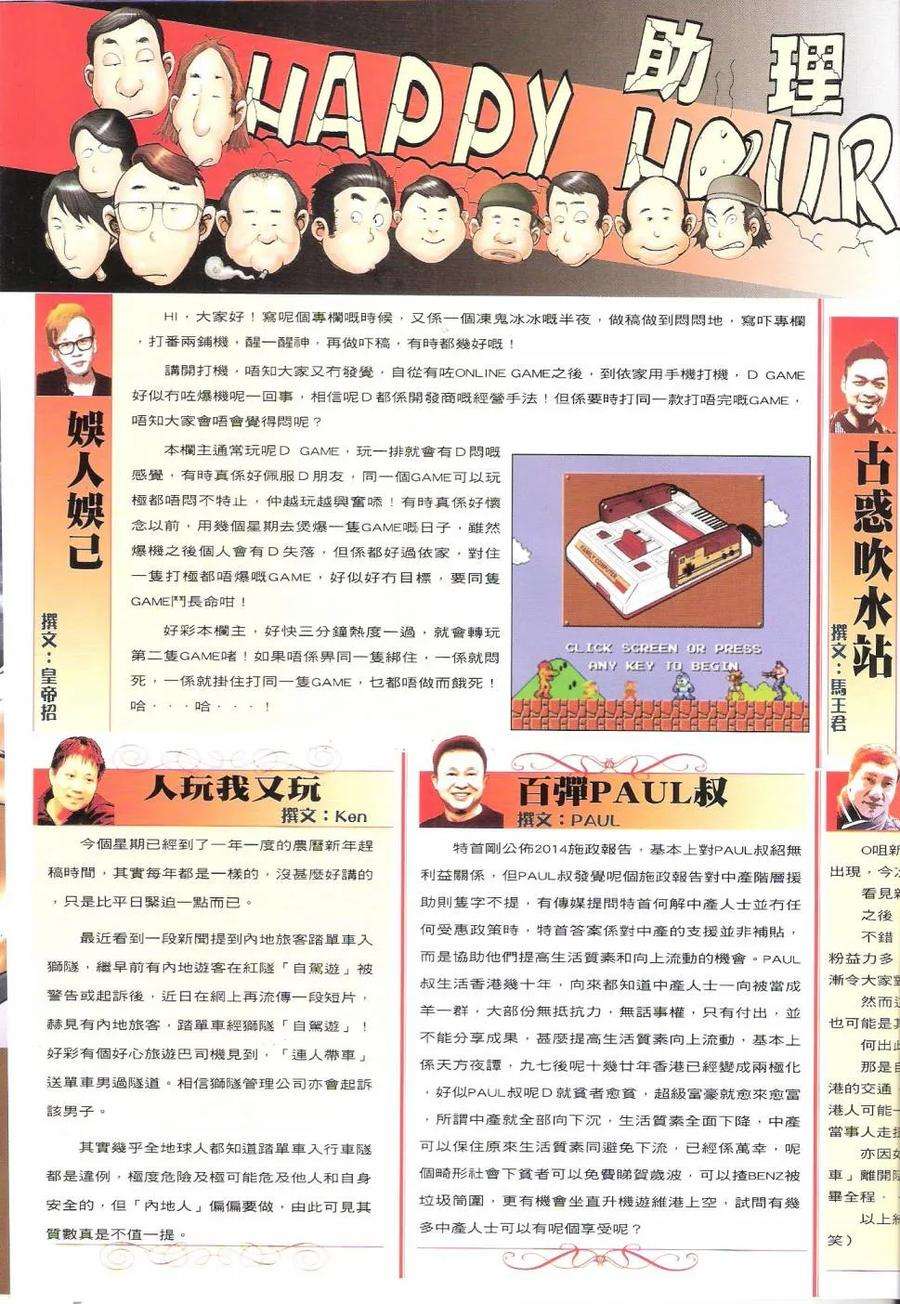 助理
HAPPY HOUR
娛人娛己
撰文：皇帝招
HI．大家好！寫呢個專欄嘅時候，又係一個凍鬼冰冰嘅半夜，做稿做到悶悶地，寫吓專欄
，打番兩鋪機，醒一醒神，再做吓稿，有時都幾好嘅！
講開打機，唔知大家又冇發覺，自從有咗ONLINE GAME之後，到依家用手機打機，D GAME
好似冇咗爆機呢一回事，相信呢D都係開發商嘅經營手法！但係要時打同一款打唔完嘅GAME，
唔知大家會唔會覺得悶呢？
本欄主通常玩呢D GAME，玩一排就會有D悶嘅
感覺，有時真係好佩服D朋友，同一個GAME可以玩
極都唔悶不特止，仲越玩越興奮㖭！有時真係好懷
念以前，用幾個星期去煲爆一隻GAME嘅日子，雖然
爆機之後個人會有D失落，但係都好過依家，對住
一隻打極都唔爆嘅GAME，好似好冇目標，要同隻
GAME鬥長命咁！
好彩本欄主，好快三分鐘熱度一過，就會轉玩
第二隻GAME啫！如果唔係畀同一隻綁住，一係就悶
死，一係就掛住打同一隻GAME，乜都唔做而餓死！
哈．．．哈．．．！
FAMILY COMPUTER
CLICK SCREEN OR PRESS
ANY KEY TO BEGIN
古惑吹水站
撰文：馬王君
人玩我又玩
撰文：Ken
今個星期已經到了一年一度的農曆新年趕
稿時間，其實每年都是一樣的，沒甚麼好講的
，只是比平日緊迫一點而已。
最近看到一段新聞提到內地旅客踏單車入
獅隧，繼早前有內地遊客在紅隧「自駕遊」被
警告或起訴後，近日在網上再流傳一段短片，
赫見有內地旅客，踏單車經獅隧「自駕遊」！
好彩有個好心旅遊巴司機見到，「連人帶車」
送單車男過隧道。相信獅隧管理公司亦會起訴
該男子。
其實幾乎全地球人都知道踏單車入行車隧
都是違例，極度危險及極可能危及他人和自身
安全的，但「內地人」偏偏要做，由此可見其
質數真是不值一提。
百彈PAUL叔
撰文：PAUL
特首剛公佈2014施政報告，基本上對PAUL叔紹無
利益關係，但PAUL叔發覺呢個施政報告對中產階層援
助則隻字不提，有傳媒提問特首何解中產人士並冇任
何受惠政策時，特首答案係對中產的支援並非補貼，
而是協助他們提高生活質素和向上流動的機會。PAUL
叔生活香港幾十年，向來都知道中產人士一向被當成
羊一群，大部份無抵抗力，無話事權，只有付出，並
不能分享成果，甚麼提高生活質素向上流動，基本上
係天方夜譚，九七後呢十幾廿年香港已經變成兩極化
，好似PAUL叔呢D就貧者愈貧，超級富豪就愈來愈富
，所謂中產就全部向下沉，生活質素全面下降，中產
可以保住原來生活質素同避免下流，已經係萬幸，呢
個畸形社會下貧者可以免費睇賀歲波，可以揸BENZ被
垃圾筒圍，更有機會坐直升機遊維港上空，試問有幾
多中產人士可以有呢個享受呢？
O咀新
出現，今次
看見新
之後，
不錯，
粉益力多，
漸令大家對
然而這
也可能是其
何出此
那是自
港的交通，
港人可能一
當事人走捷
亦因如
車」離開隧
畢全程．．
以上純
笑）